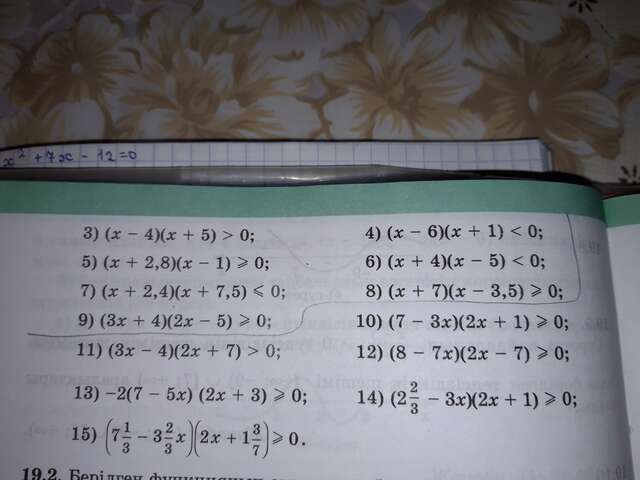 x² + 7x - 12 = 0
3) (x − 4)(x + 5) > 0; 4) (x − 6)(x + 1) < 0;
5) (x + 2,8)(x − 1) ⩾ 0; 6) (x + 4)(x − 5) < 0;
7) (x + 2,4)(x + 7,5) ⩽ 0; 8) (x + 7)(x − 3,5) ⩾ 0;
9) (3x + 4)(2x − 5) ⩾ 0; 10) (7 − 3x)(2x + 1) ⩾ 0;
11) (3x − 4)(2x + 7) > 0; 12) (8 − 7x)(2x − 7) ⩾ 0;
13) −2(7 − 5x) (2x + 3) ⩾ 0; 14) (2 2/3 − 3x)(2x + 1) ⩾ 0;
15) (7 1/3 − 3 2/3 x)(2x + 1 3/7) ⩾ 0.
19.2. Берілген функцияның